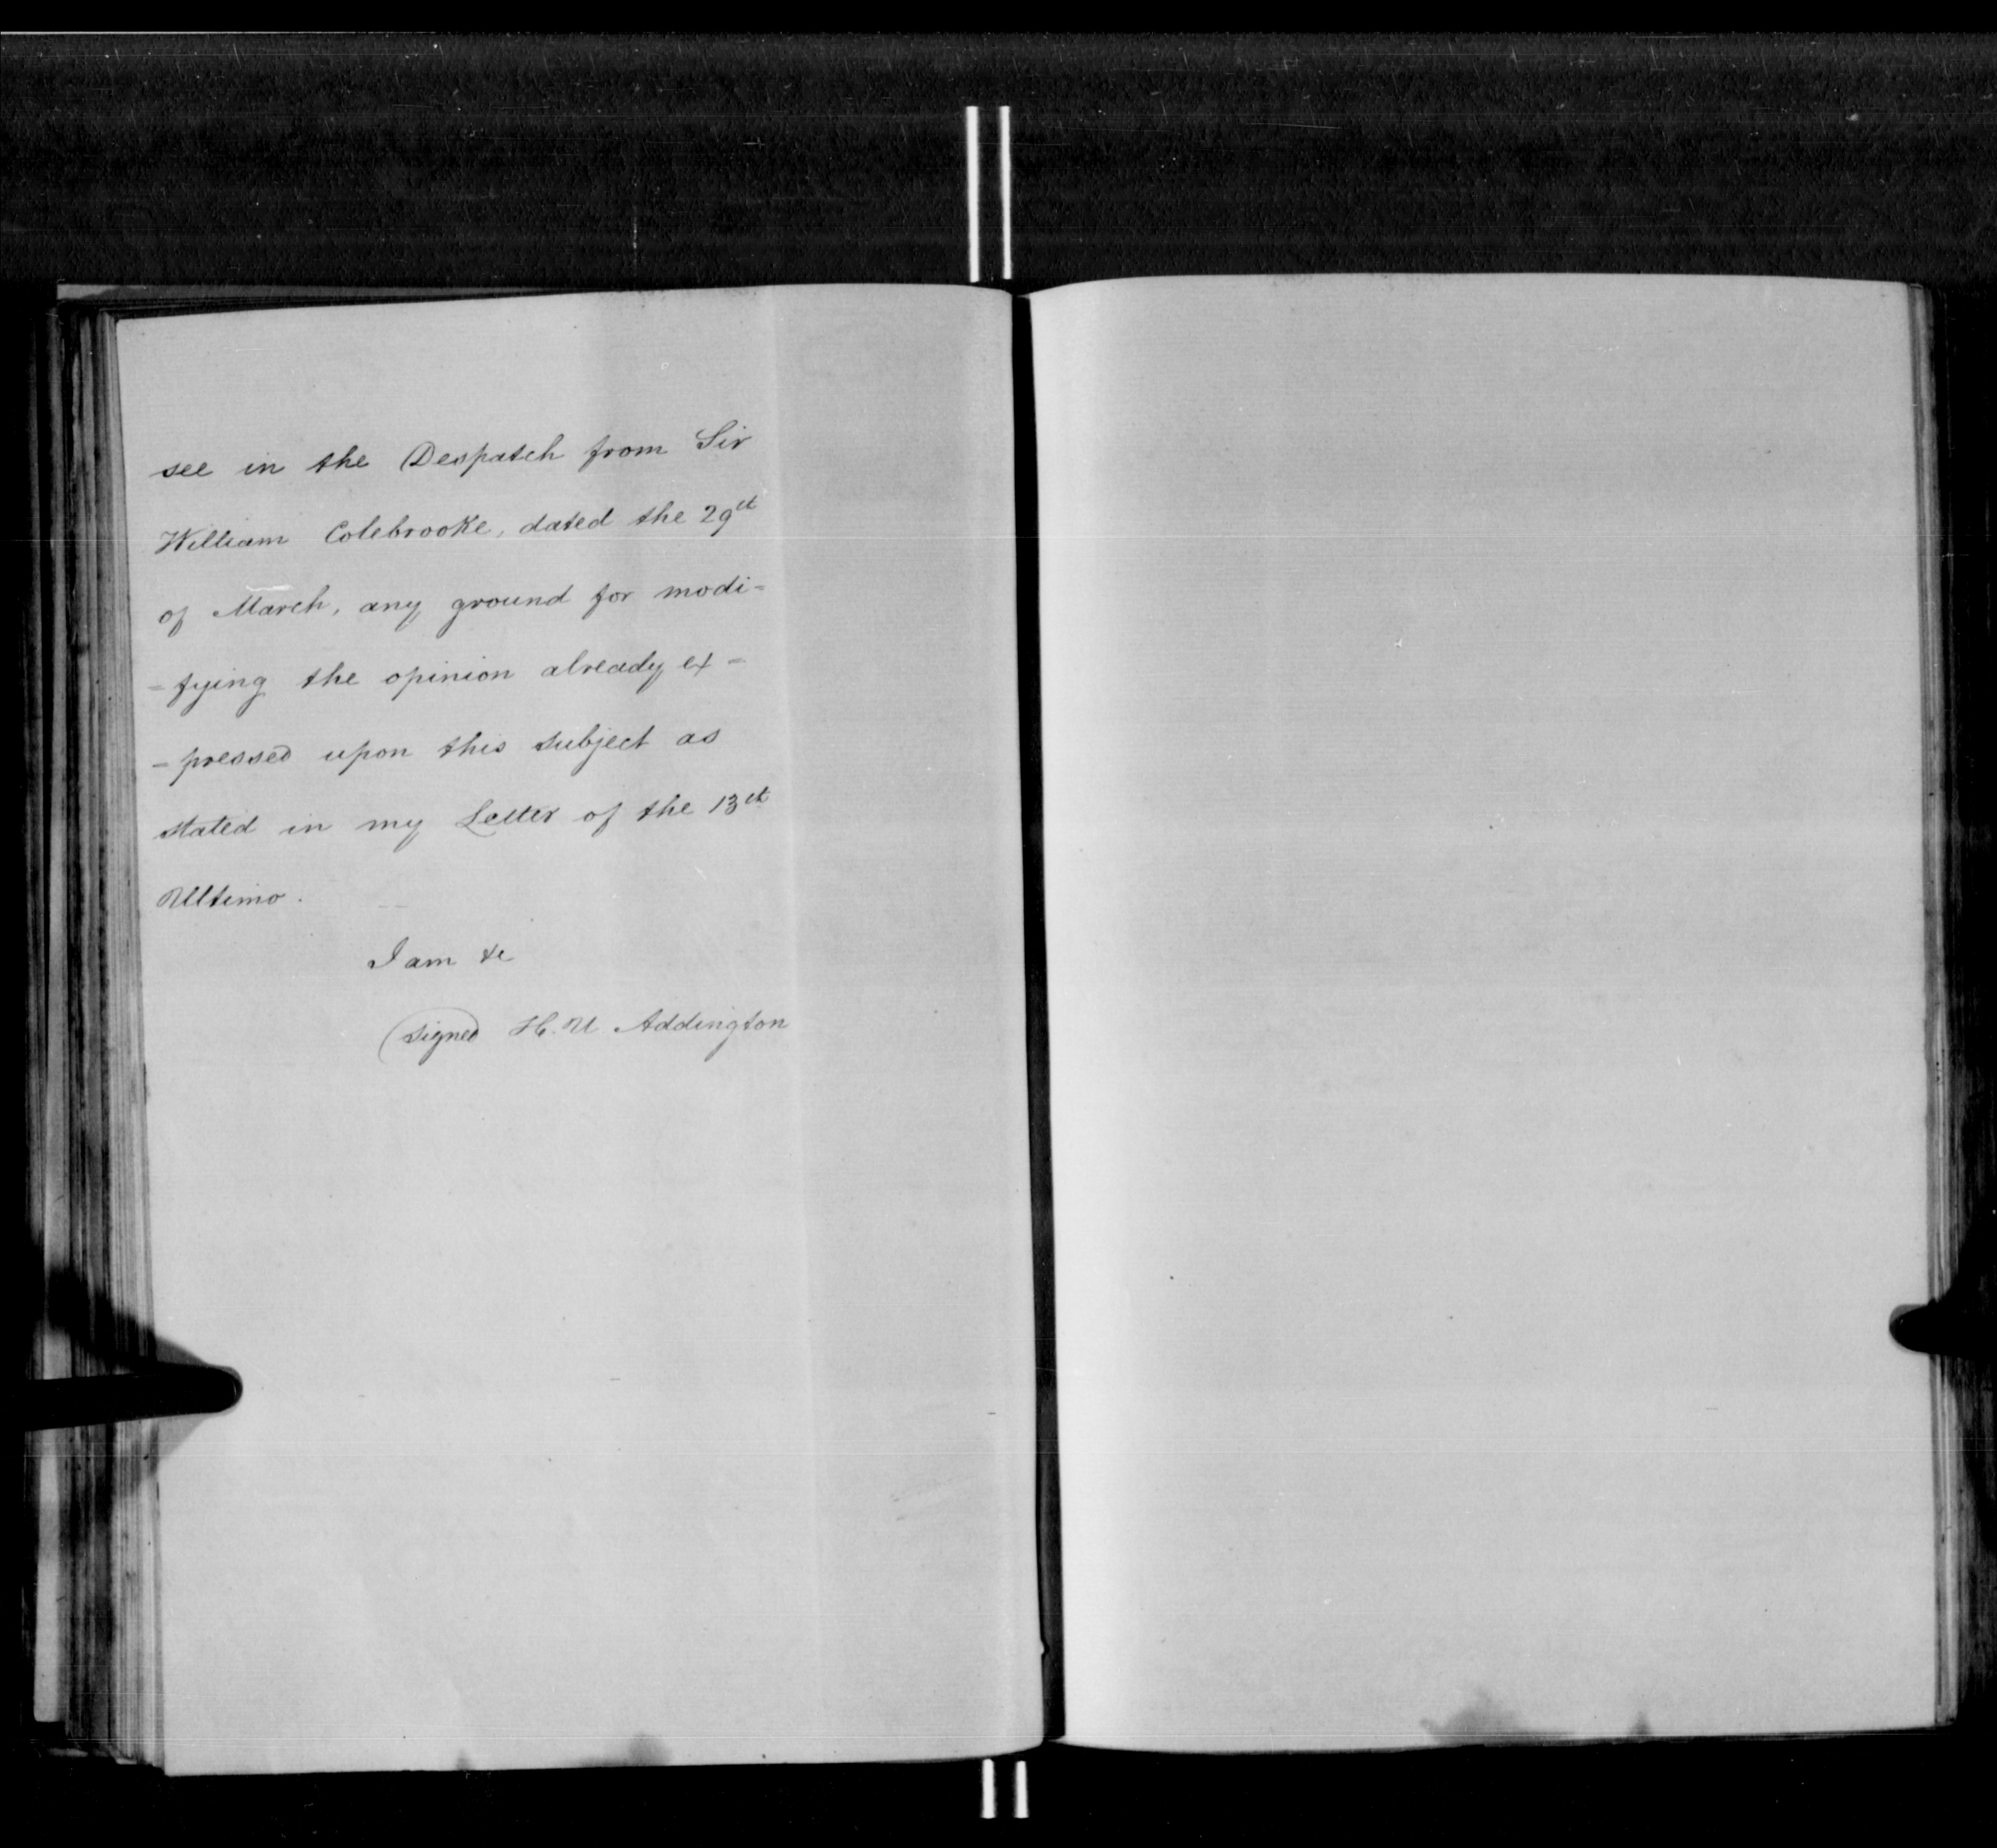 see in the Despatch from Sir
William Colebrooke, dated the 29th
of March, any ground for modi=
=fying the opinion already ex=
=pressed upon this subject as
stated in my Letter of the 13th
Ultimo.
I am &c
(signed H. U. Addington